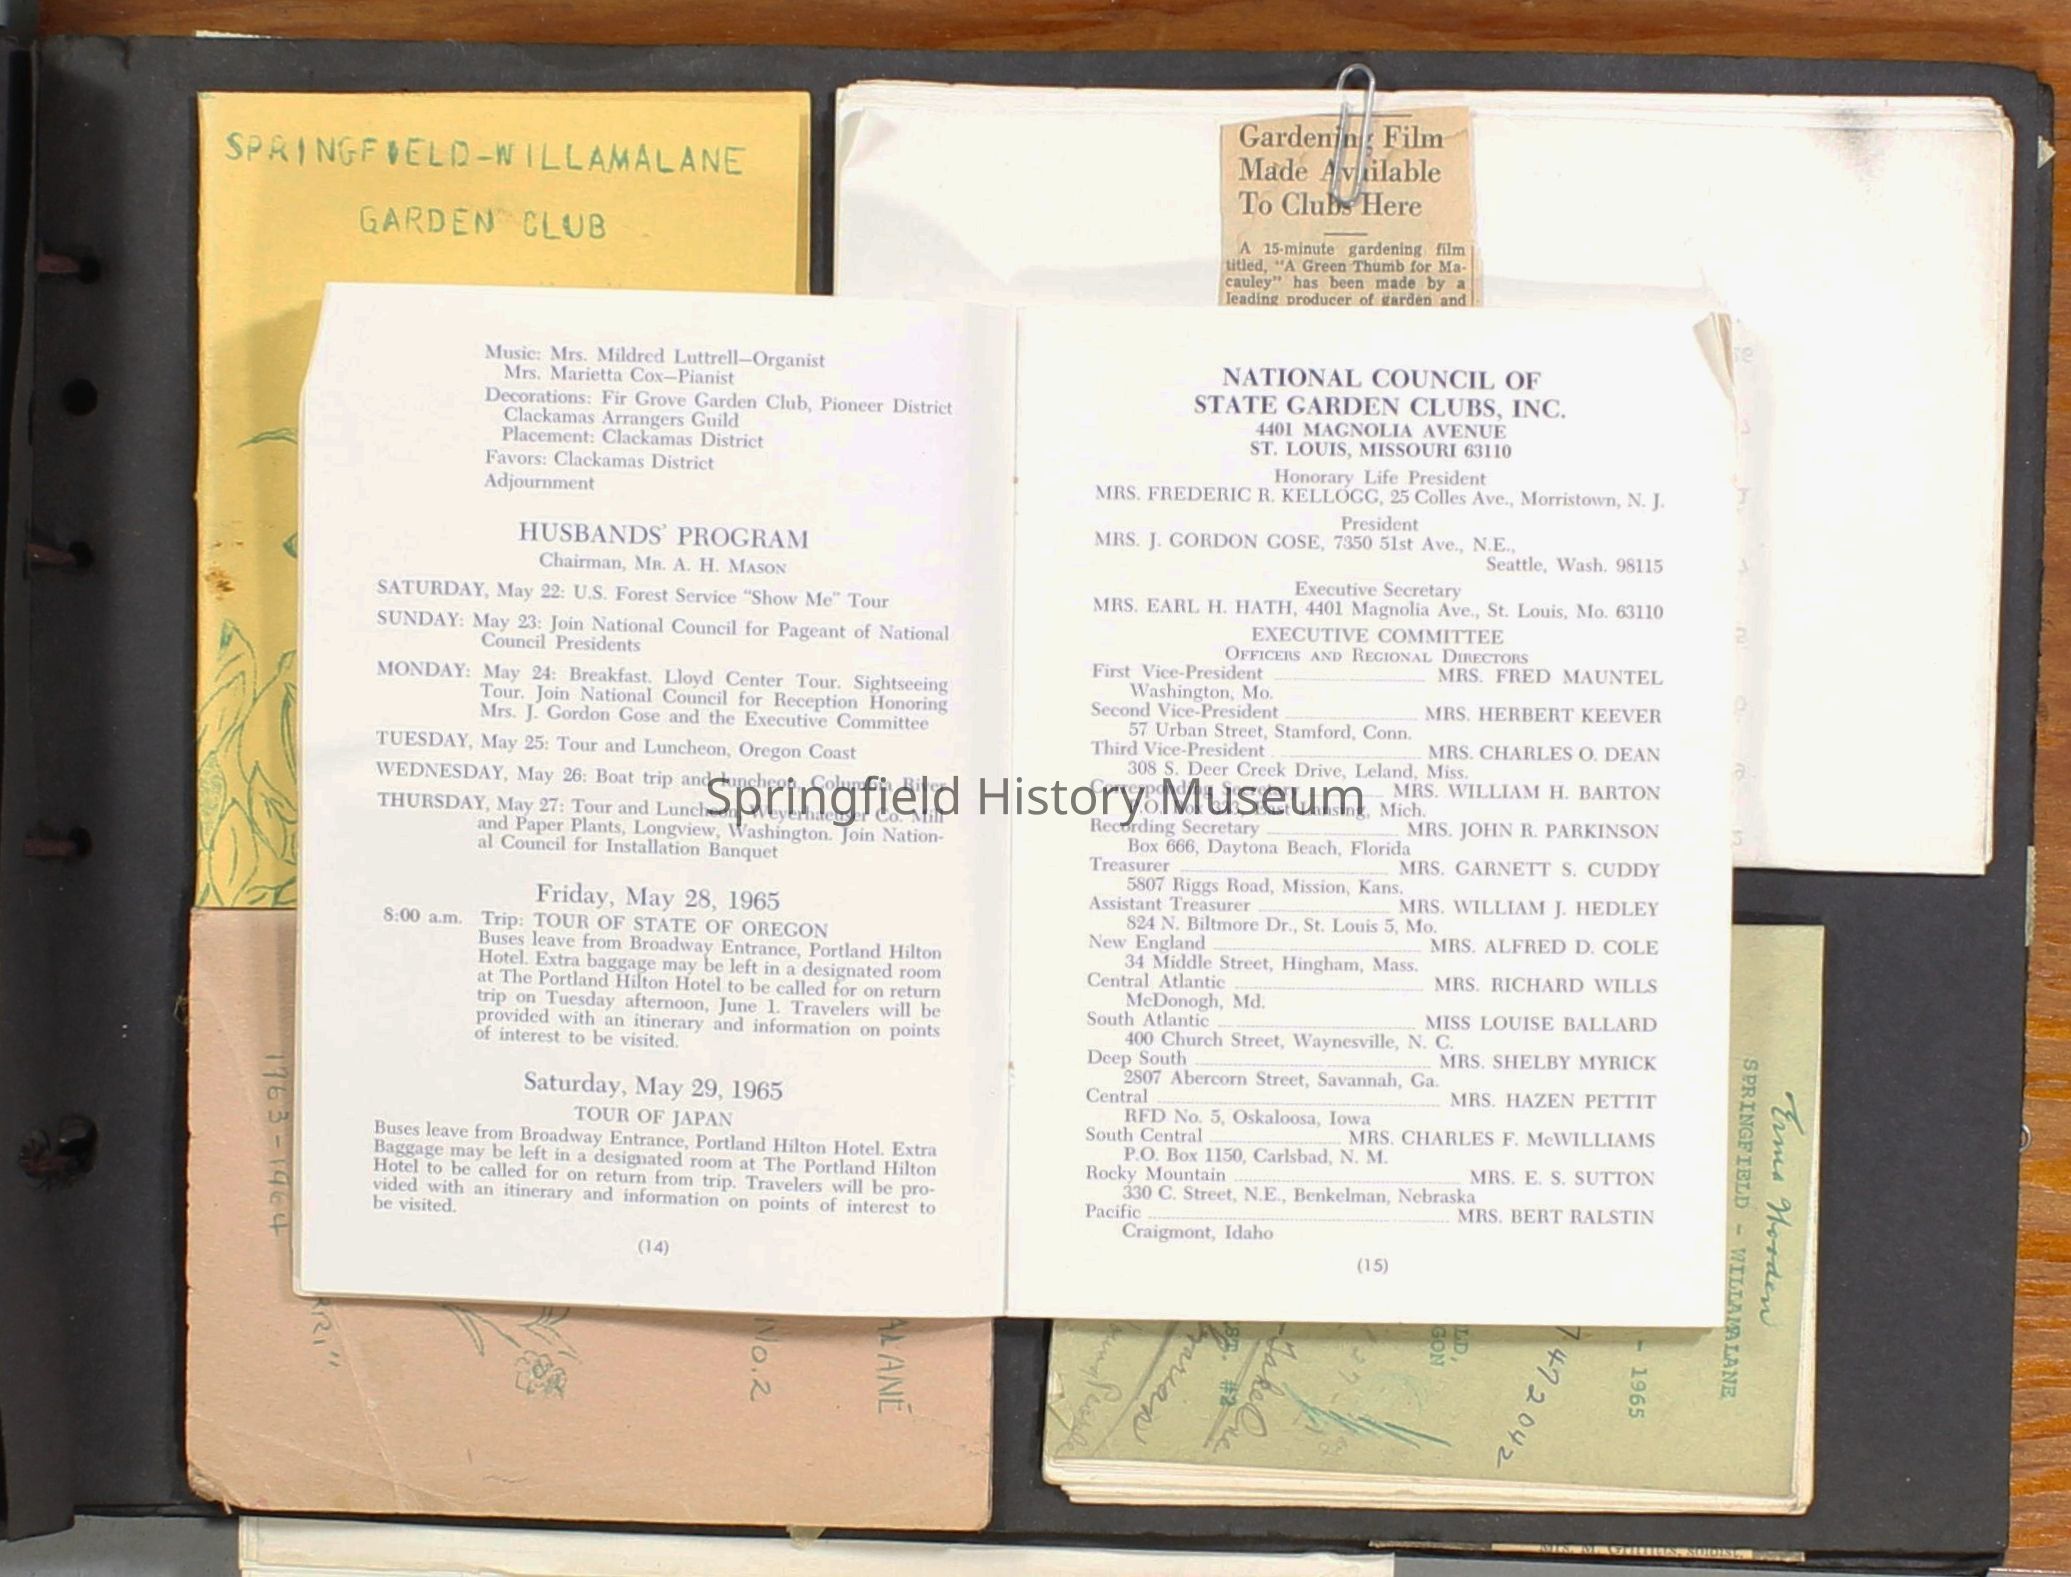 SPRINGFIELD-WILLAMALANE
GARDEN CLUB
Gardening Film
Made Available
To Clubs Here
A 15-minute gardening film
titled, "A Green Thumb for Ma-
cauley" has been made by a
leading producer of garden and
Music: Mrs. Mildred Luttrell—Organist
Mrs. Marietta Cox—Pianist
Decorations: Fir Grove Garden Club, Pioneer District
Clackamas Arrangers Guild
Placement: Clackamas District
Favors: Clackamas District
Adjournment
HUSBANDS' PROGRAM
Chairman, MR. A. H. MASON
SATURDAY, May 22: U.S. Forest Service "Show Me" Tour
SUNDAY: May 23: Join National Council for Pageant of National
Council Presidents
MONDAY: May 24: Breakfast. Lloyd Center Tour. Sightseeing
Tour. Join National Council for Reception Honoring
Mrs. J. Gordon Gose and the Executive Committee
TUESDAY, May 25: Tour and Luncheon, Oregon Coast
WEDNESDAY, May 26: Boat trip and luncheon, Columbia River
THURSDAY, May 27: Tour and Luncheon, Weyerhaeuser Co. Mill
and Paper Plants, Longview, Washington. Join Nation-
al Council for Installation Banquet
Friday, May 28, 1965
8:00 a.m. Trip: TOUR OF STATE OF OREGON
Buses leave from Broadway Entrance, Portland Hilton
Hotel. Extra baggage may be left in a designated room
at The Portland Hilton Hotel to be called for on return
trip on Tuesday afternoon, June 1. Travelers will be
provided with an itinerary and information on points
of interest to be visited.
Saturday, May 29, 1965
TOUR OF JAPAN
Buses leave from Broadway Entrance, Portland Hilton Hotel. Extra
Baggage may be left in a designated room at The Portland Hilton
Hotel to be called for on return from trip. Travelers will be pro-
vided with an itinerary and information on points of interest to
be visited.
(14)
NATIONAL COUNCIL OF
STATE GARDEN CLUBS, INC.
4401 MAGNOLIA AVENUE
ST. LOUIS, MISSOURI 63110
Honorary Life President
MRS. FREDERIC R. KELLOGG, 25 Colles Ave., Morristown, N. J.
President
MRS. J. GORDON GOSE, 7350 51st Ave., N.E.,
Seattle, Wash. 98115
Executive Secretary
MRS. EARL H. HATH, 4401 Magnolia Ave., St. Louis, Mo. 63110
EXECUTIVE COMMITTEE
OFFICERS AND REGIONAL DIRECTORS
First Vice-President MRS. FRED MAUNTEL
Washington, Mo.
Second Vice-President MRS. HERBERT KEEVER
57 Urban Street, Stamford, Conn.
Third Vice-President MRS. CHARLES O. DEAN
308 S. Deer Creek Drive, Leland, Miss.
Corresponding Secretary MRS. WILLIAM H. BARTON
P.O. Box 323, East Lansing, Mich.
Recording Secretary MRS. JOHN R. PARKINSON
Box 666, Daytona Beach, Florida
Treasurer MRS. GARNETT S. CUDDY
5807 Riggs Road, Mission, Kans.
Assistant Treasurer MRS. WILLIAM J. HEDLEY
824 N. Biltmore Dr., St. Louis 5, Mo.
New England MRS. ALFRED D. COLE
34 Middle Street, Hingham, Mass.
Central Atlantic MRS. RICHARD WILLS
McDonogh, Md.
South Atlantic MISS LOUISE BALLARD
400 Church Street, Waynesville, N. C.
Deep South MRS. SHELBY MYRICK
2807 Abercorn Street, Savannah, Ga.
Central MRS. HAZEN PETTIT
RFD No. 5, Oskaloosa, Iowa
South Central MRS. CHARLES F. McWILLIAMS
P.O. Box 1150, Carlsbad, N. M.
Rocky Mountain MRS. E. S. SUTTON
330 C. Street, N.E., Benkelman, Nebraska
Pacific MRS. BERT RALSTIN
Craigmont, Idaho
(15)
Springfield History Museum
1963-1964
ALANE
NO. 2
SPRINGFIELD - WILLAMALANE
- 1965
7472042
#2
Mrs. M. Griffitts, soloist.